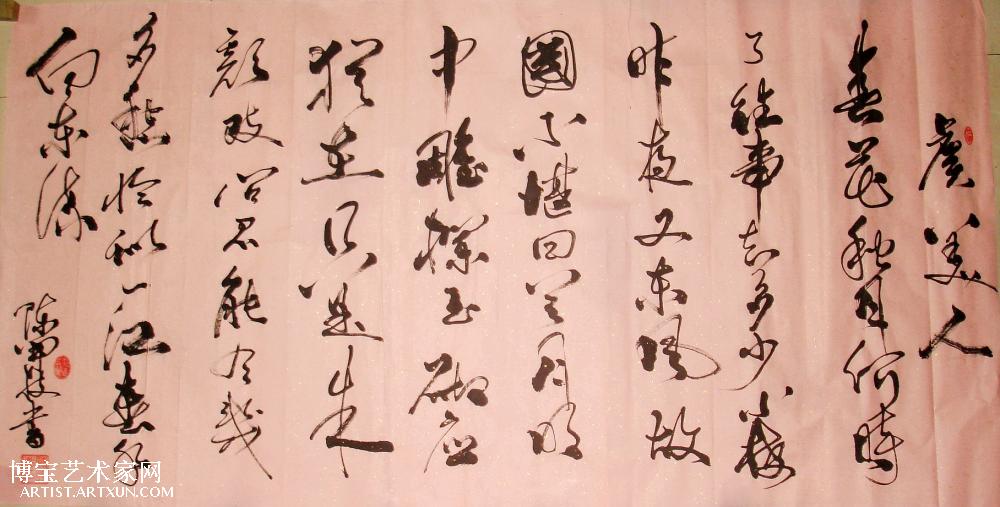 虞美人
春花秋月何時
了往事知多少小樓
昨夜又東風故
國不堪回首月明
中雕欄玉砌應
猶在只是朱
顏改问君能有幾
多愁恰似一江春水
向東流
書
博宝艺术家网
ARTIST.ARTXUN.COM